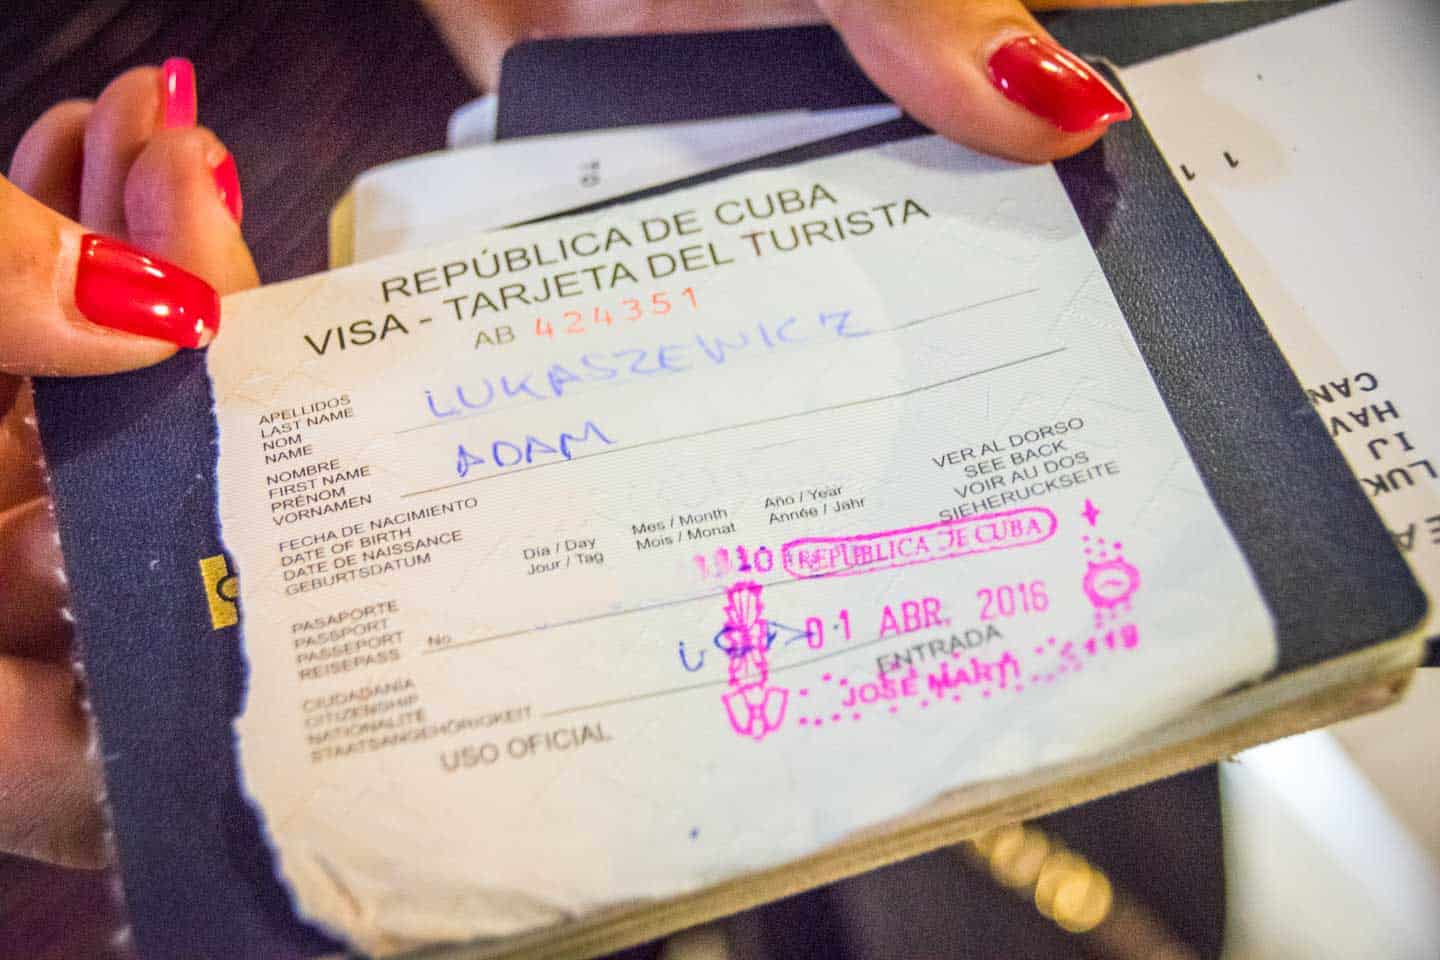 REPÚBLICA DE CUBA
VISA - TARJETA DEL TURISTA
AB 424351
APELLIDOS
LAST NAME
NOM
NAME
LUKASZEWICZ
NOMBRE
FIRST NAME
PRÉNOM
VORNAMEN
ADAM
FECHA DE NACIMIENTO
DATE OF BIRTH
DATE DE NAISSANCE
GEBURTSDATUM
Día / Day
Jour / Tag
Mes / Month
Mois / Monat
Año / Year
Année / Jahr
VER AL DORSO
SEE BACK
VOIR AU DOS
SIEHERUCKSEITE
PASAPORTE
PASSPORT
PASSEPORT
REISEPASS
No.
REPÚBLICA DE CUBA
01 ABR. 2016
ENTRADA
JOSE MARTI
CIUDADANÍA
CITIZENSHIP
NATIONALITE
STAATSANGEHÖRIGKEIT
USO OFICIAL
CAN
HAV
IJ
LUK